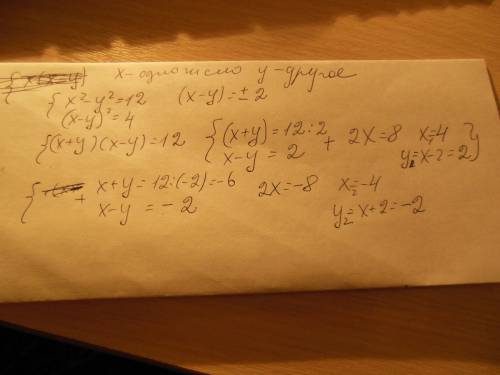 x - одно число y - другое
{ x² - y² = 12 (x-y) = ± 2
(x-y)² = 4
{ (x+y)(x-y) = 12 { (x+y) = 12 : 2 + 2x = 8 x₁ = 4
x - y = 2 y₁ = x - 2 = 2 }
{ + x + y = 12 : (-2) = -6 2x = -8 x₂ = -4
x - y = - 2 y₂ = x + 2 = -2